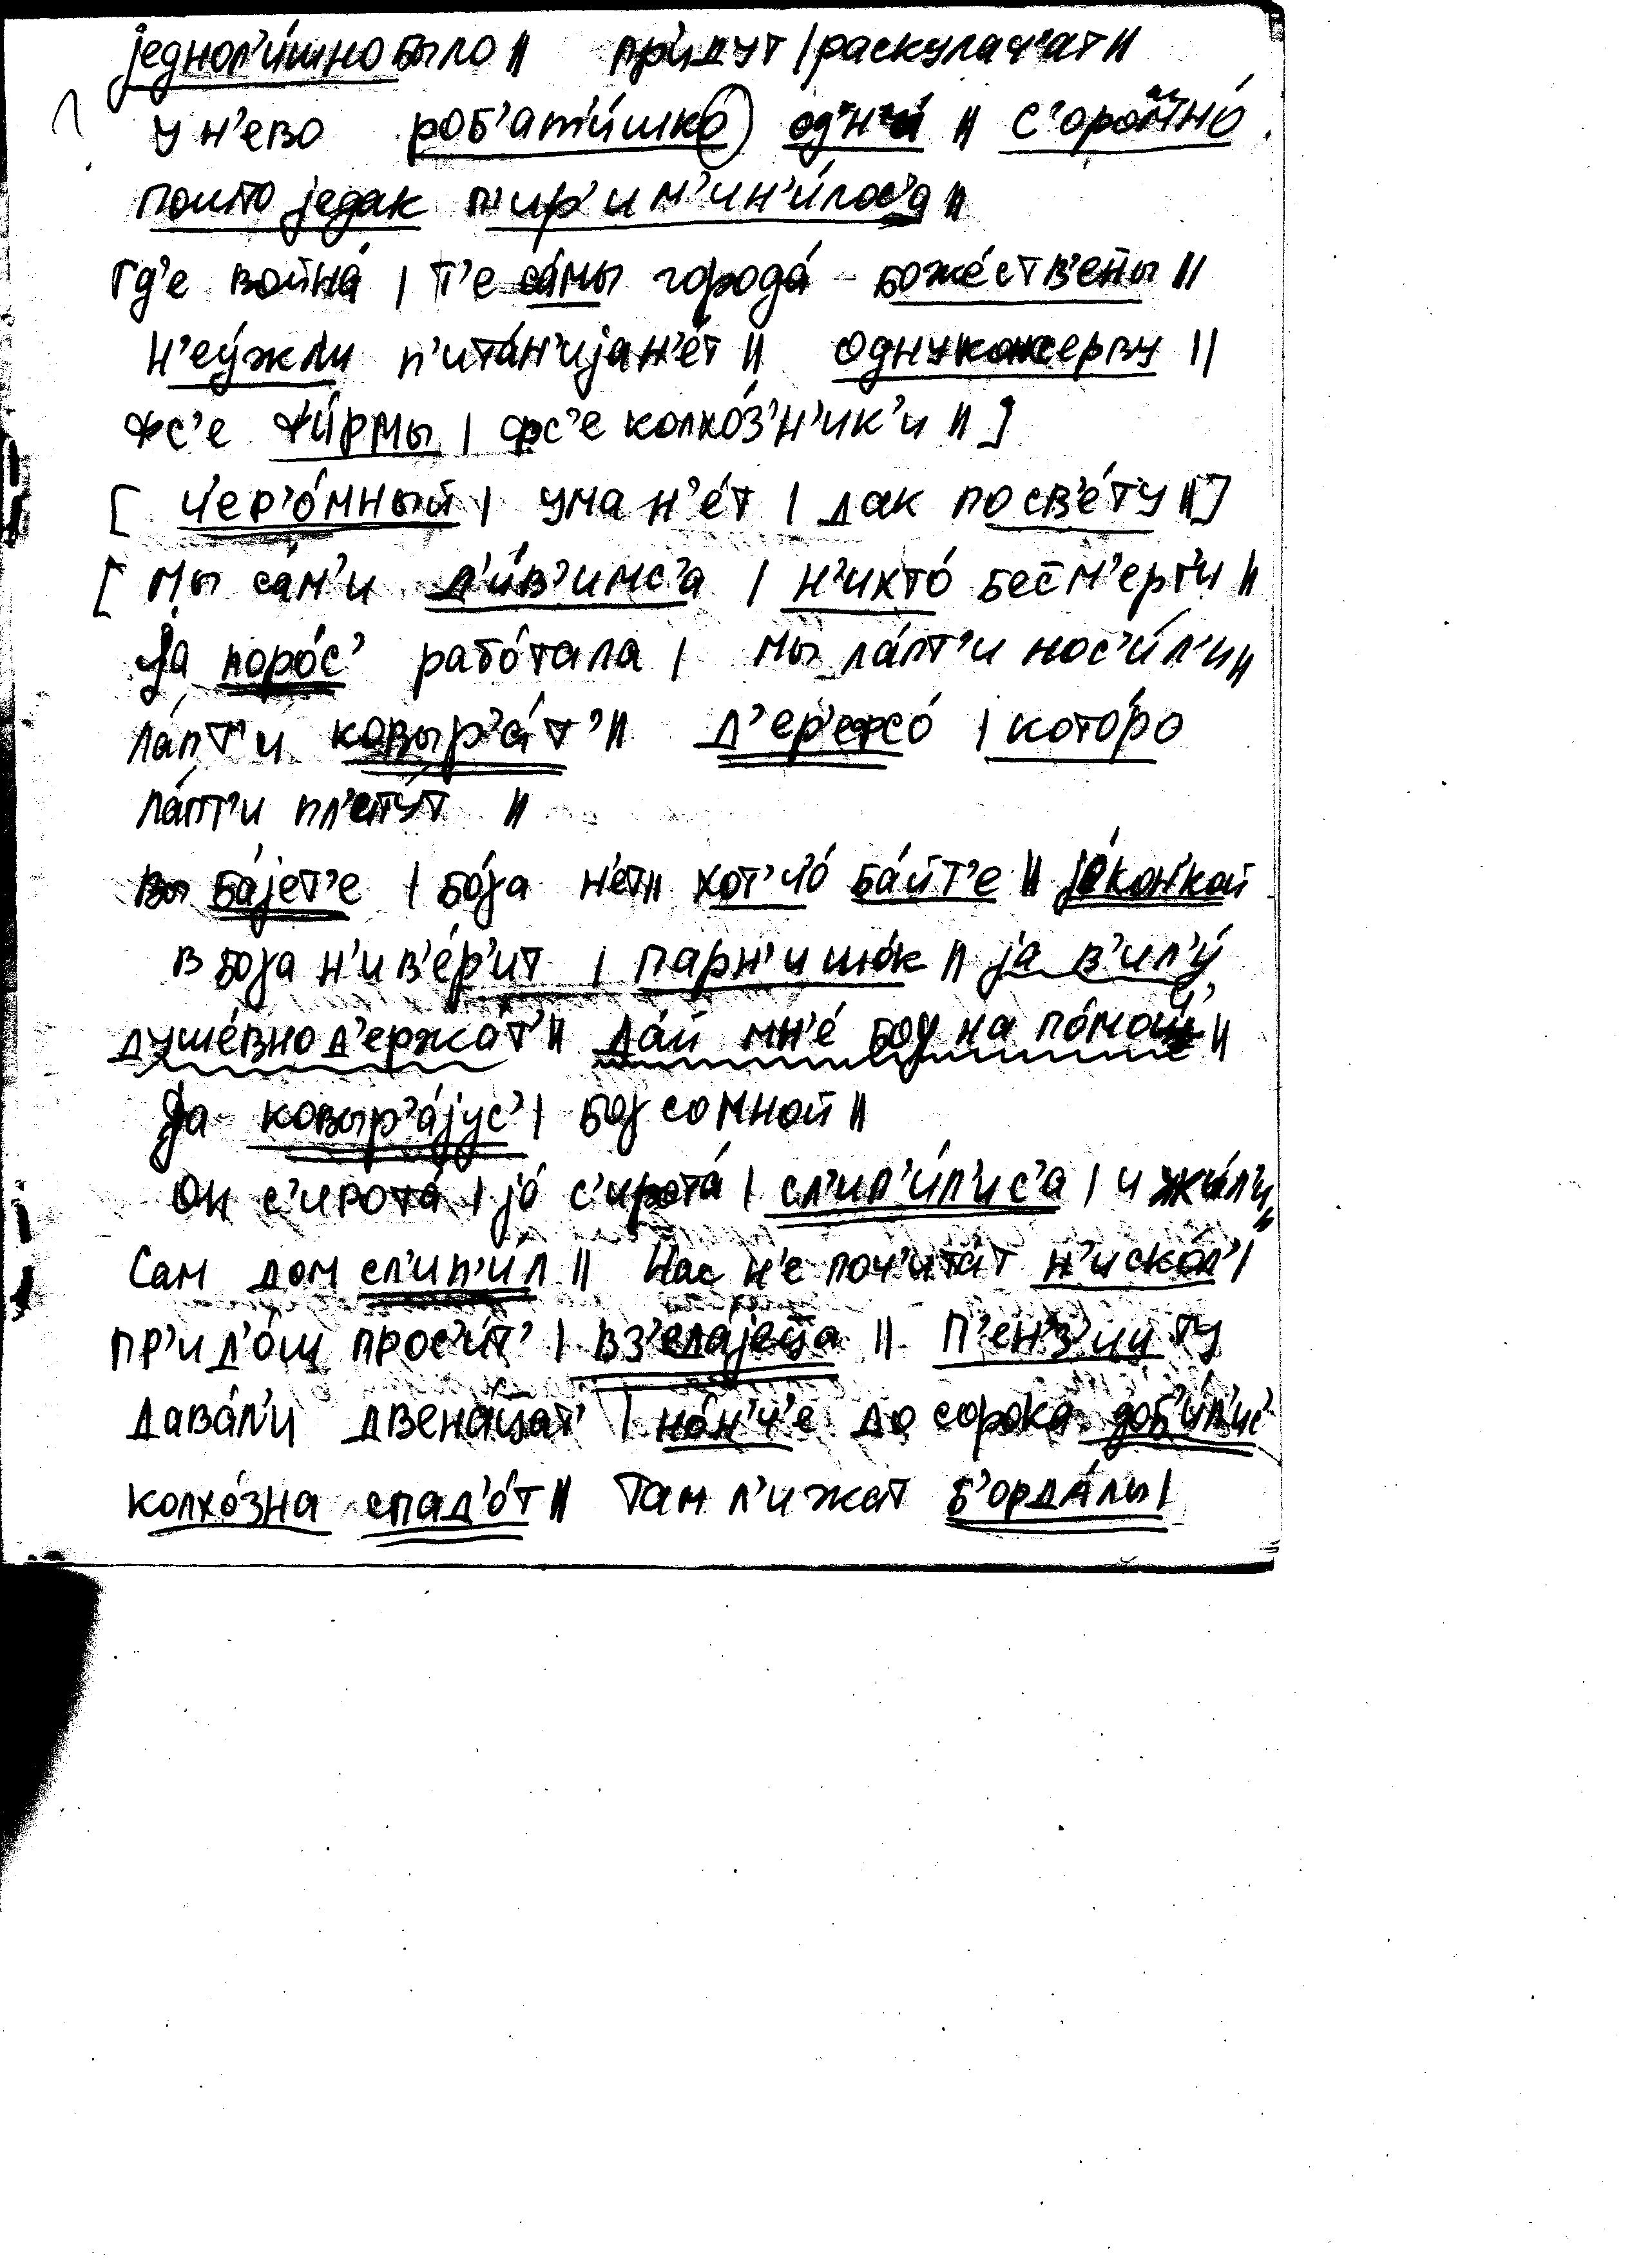 једнол'и́шно было || прид́ут | раскулач'ат ||
у н'ево роб'ат'и́шко од'н'и́ || с'оромно́
пошто једак п'ир'им'ин'и́лос'а ||
гд'е война́ | т'е са́мы города́ божéств'ены ||
н'еу́жли п'ита́н'ија н'е́т || одну консерву ||
фс'е фи́рмы | фс'е колхо́з'н'ик'и || ]
[ ч'ер'о́мный | ума н'е́т | дак по св'е́ту || ]
[ мы са́м'и д'и́в'имс'а | н'икто́ бес см'ерт'и ||
ја поро́с' рабо́тала | мы ла́пт'и нос'и́л'и ||
ла́пт'и ковыр'а́т' || д'ер'ežо́ | кото́ро
ла́пт'и пл'ету́т ||
вы ба́јет'е | бо́га н'ет || хот' ч'о́ ба́йт'е || је́кон'кай
в бога н'и в'е́р'ит | парн'ишо́к || ја в'ил'у́
душе́вно д'ержа́т' || да́й мн'е́ бог на по́моч' ||
ја ковыр'а́јус' | бог со мной ||
он с'ирота́ | ја́ с'ирота́ | сл'ип'и́л'ис'а | и жи́л'и ||
сам дом сл'ип'и́л || нас н'е поч'ита́т н'иско́л' |
пр'ид'о́ш прос'и́т' | вз'ела́јеца || п'ен'з'иу ту
дава́л'и двена́цат' | но́н'ч'е до сорока доб'и́л'ис'
колхо́зна спад'о́т || там л'ижат б'орда́лы |